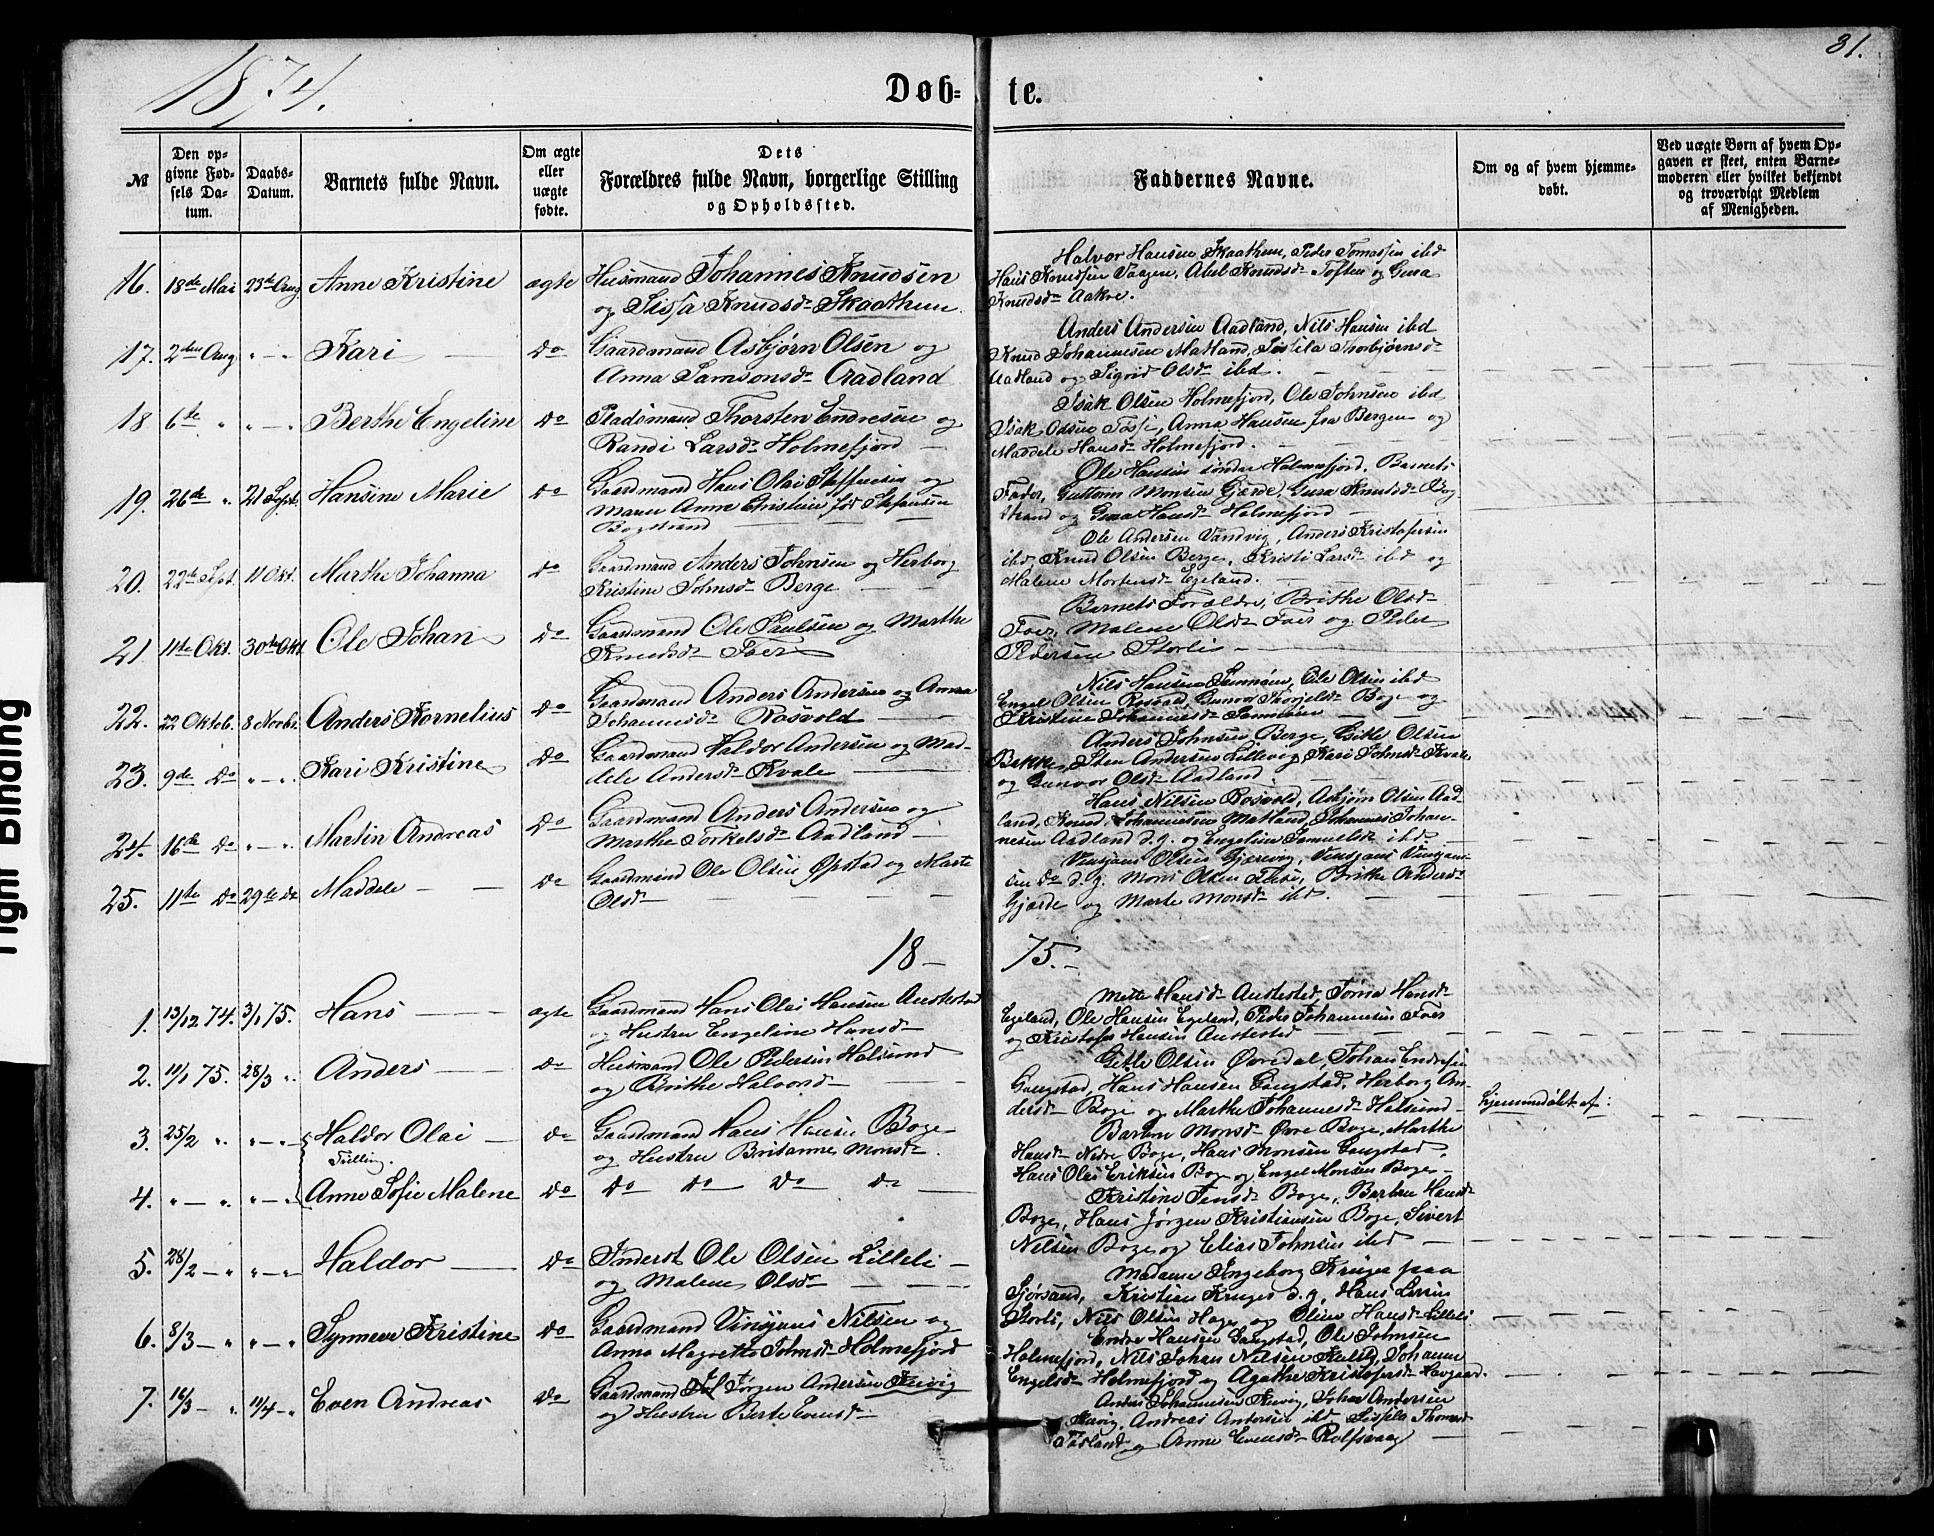 1874.
Døb-
te.
31.
№
Den op-
givne Fød-
sels Da-
tum.
Daabs-
Datum.
Barnets fulde Navn.
Om ægte
eller
uægte
fødte.
Dets
Forældres fulde Navn, borgerlige Stilling
og Opholdssted.
Faddernes Navne.
Om og af hvem hjemme-
døbt.
Ved uægte Børn af hvem Op-
gaven er skeet, enten Barne-
moderen eller hvilket bekjendt
og troværdigt Medlem
af Menigheden.
16. 18de Mai 23de Aug Anne Kristine ægte Husmand Johannes Knudsen
og Sissa Knudsdr Skaathun
Halvor Hansen Skaathun, Peder Tomassen ibd
Hans Knudsen Vaagen, Abel Knudsdr Toften og Gura
Knudsdr Aakre.
17. 2den Aug " - " Kari Do Gaardmand Asbjørn Olsen og
Anna Samsonsdr Aadland
Anders Andersen Aadland, Nils Hansen ibd
Knud Johannesen Matland, Sissela Thorbjørnsdr
Aadland og Sigrid Olsdr ibd.
18 6te " " - " Berthe Engeline Do Pladsmand Thorsten Endresen og
Randi Larsdr Holmefjord
Isak Olsen Holmefjord, Ole Johnsen ibd
Isak Olsen, Anna Hansen fra Bergen og
Maddele Hansdr Holmefjord.
19. 26de " 21 Sept. Hansine Marie Do Gaardmand Hans Olai Steffensen og
Maren Anne Cristine fød Stefansen
Bogstrand
Ole Hansen søndre Holmefjord, Barnets
Fader, Guttorm Monsen Gjærde, Gura Knutsdr Bog
strand og Gura Hansdr Holmefjord
20. 22de Sept. 11 Okt. Marthe Johanna Do Gaardmand Anders Johnsen og Herborg
Kristine Johnsdr Berge
Ole Andersen Vandvig, Anders Kristofersen
ibd, Knud Olsen Berge, Kristi Larsdr ibd og
Malene Mortensdr Egeland.
21. 11te Okt. 30te Okt. Ole Johan Do Gaardmand Ole Paulsen og Marthe
Knudsdr Foer
Barnets Forældre, Brithe Olsdr
Foer, Malene Olsdr Foer og Peder
Pedersen Storli
22. 22 Oktob. 8 Novbr. Anders Kornelius Do Gaardmand Anders Andersen og Anna
Johannesdr Rosvold
Nils Hansen, Ole Olsen ibd
Engel Olsen Rosvold, Gunvor Boge og
Kristine Johannesdr
23. 9de Do " - " Kari Kristine Do Gaardmand Haldor Andersen og Mad-
dele Andersdr Kvale
Anders Johnsen Berge, Gitle Olsen
Bakke, Sten Andersen Lillevig, Kari Johnsdr Kvale,
og Gunvor Olsdr Aadland
24. 16de Do " - " Martin Andreas Do Gaardmand Anders Andersen og
Marthe Torkelsdr Aadland
Hans Nilsen Rosvold, Asbjørn Olsen Aad-
land, Knud Johannesen Matland, Johannes Johan-
nesen Aadland d. y. og Engeline Samuelsdr ibd.
25. 11te Do 29te Do Maddele Do Gaardmand Ole Olsen Opstad og Marte
Olsdr
Vinsjans Olsen Gjærevig, Vinsjans Vinsjans-
sen Do d. y. Mons Olsen, Brithe Andersdr
Gjærde og Marte Monsdr ibd.
18 75.
1. 13/12 74. 3/1 75. Hans ægte Gaardmand Hans Olai Hansen Austestad
og Hustru Engeline Hansdr
Mette Hansdr Austestad, Torine Hansdr
Egeland, Ole Hansen Egeland, Peder Johannesen Foer
og Kristofer Hansen Austestad
2. 10/1 75. 28/3 " Anders Do Husmand Ole Pedersen Halsund
og Brithe Halvordr
Gitle Olsen Øvredal, Johan Endresen
Gangstad, Hans Hansen Gangstad, Herborg An-
dersdr Boge og Marthe Johannesdr Halsund
3. 25/2 " " - " Haldor Olai Do Gaardmand Hans Hansen Boge
Tvilling.
og Hustru Britanne Monsdr.
Barbro Monsdr Øvre Boge, Marthe
Hansdr Nedre Boge, Hans Monsen Gangstad,
Hans Olai Eriksen Boge og Engel Monsen Boge
Hjemmedøbt af:
4. " - " " - " Anne Sofie Malene Do Do Do Do Do
Kristine Jensdr Boge, Barbro Hansdr
Boge, Hans Jørgen Kristiansen Boge, Sivert
Nilsen Boge og Elias Johnsen ibd
5. 28/2 - " " - " Haldor Do Inderst Ole Olsen Lilleli
og Malene Olsdr
Madame Ingeborg Krüger paa
Sjørsand, Kristian Krüger d. y., Hans Larsen
Storli, Nils Olsen Hage og Oline Hansdr Lilleli
6. 8/3 - " " - " Synneve Kristine Do Gaardmand Vinsjans Nilsen og
Anna Magrethe Johnsdr Holmefjord
Endre Hansen Gangstad, Ole Johnsen
Holmefjord, Nils Johan Nilsen, Johanne
Engelsdr Holmefjord og Agathe Kristofersdr Havgaard.
7. 16/3 - " 11/4 - " Even Andreas Do Gaardmand Jørgen Andersen Kvevig
og Hustru Berte Evensdr
Anders Johannesen Kvevig, Johan Andersen
Kvevig, Andreas Andersen ibd, Sissela Thomasdr
Tadland og Anne Evensdr Rolfsvaag
Tight Binding